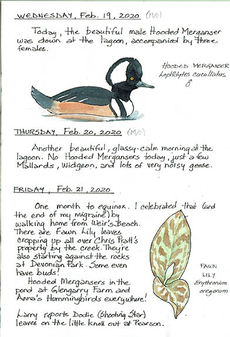 WEDNESDAY, Feb. 19, 2020
Today, the beautiful male Hooded Merganser
was down at the lagoon, accompanied by three
females.
HOODED MERGANSER
Lophodytes cucullatus
♂
THURSDAY, Feb. 20, 2020
Another beautiful, glassy-calm morning at the
lagoon. No Hooded Mergansers today, just a few
Mallards, Widgeon, and lots of very noisy geese.
FRIDAY, Feb. 21, 2020
One month to equinox. I celebrated that (and
the end of my migraine) by
walking home from Weir's Beach.
There are Fawn Lily leaves
cropping up all over Chris Pratt's
property by the creek. They're
also starting against the rocks
at Devonian Park. Some even
have buds!
Hooded Mergansers in the
pond at Glengarry Farm and
Anna's Hummingbirds everywhere!
Larry reports Dodie (Shooting Star)
leaves on the little knoll out at Pearson.
FAWN
LILY
Erythronium
oregonum